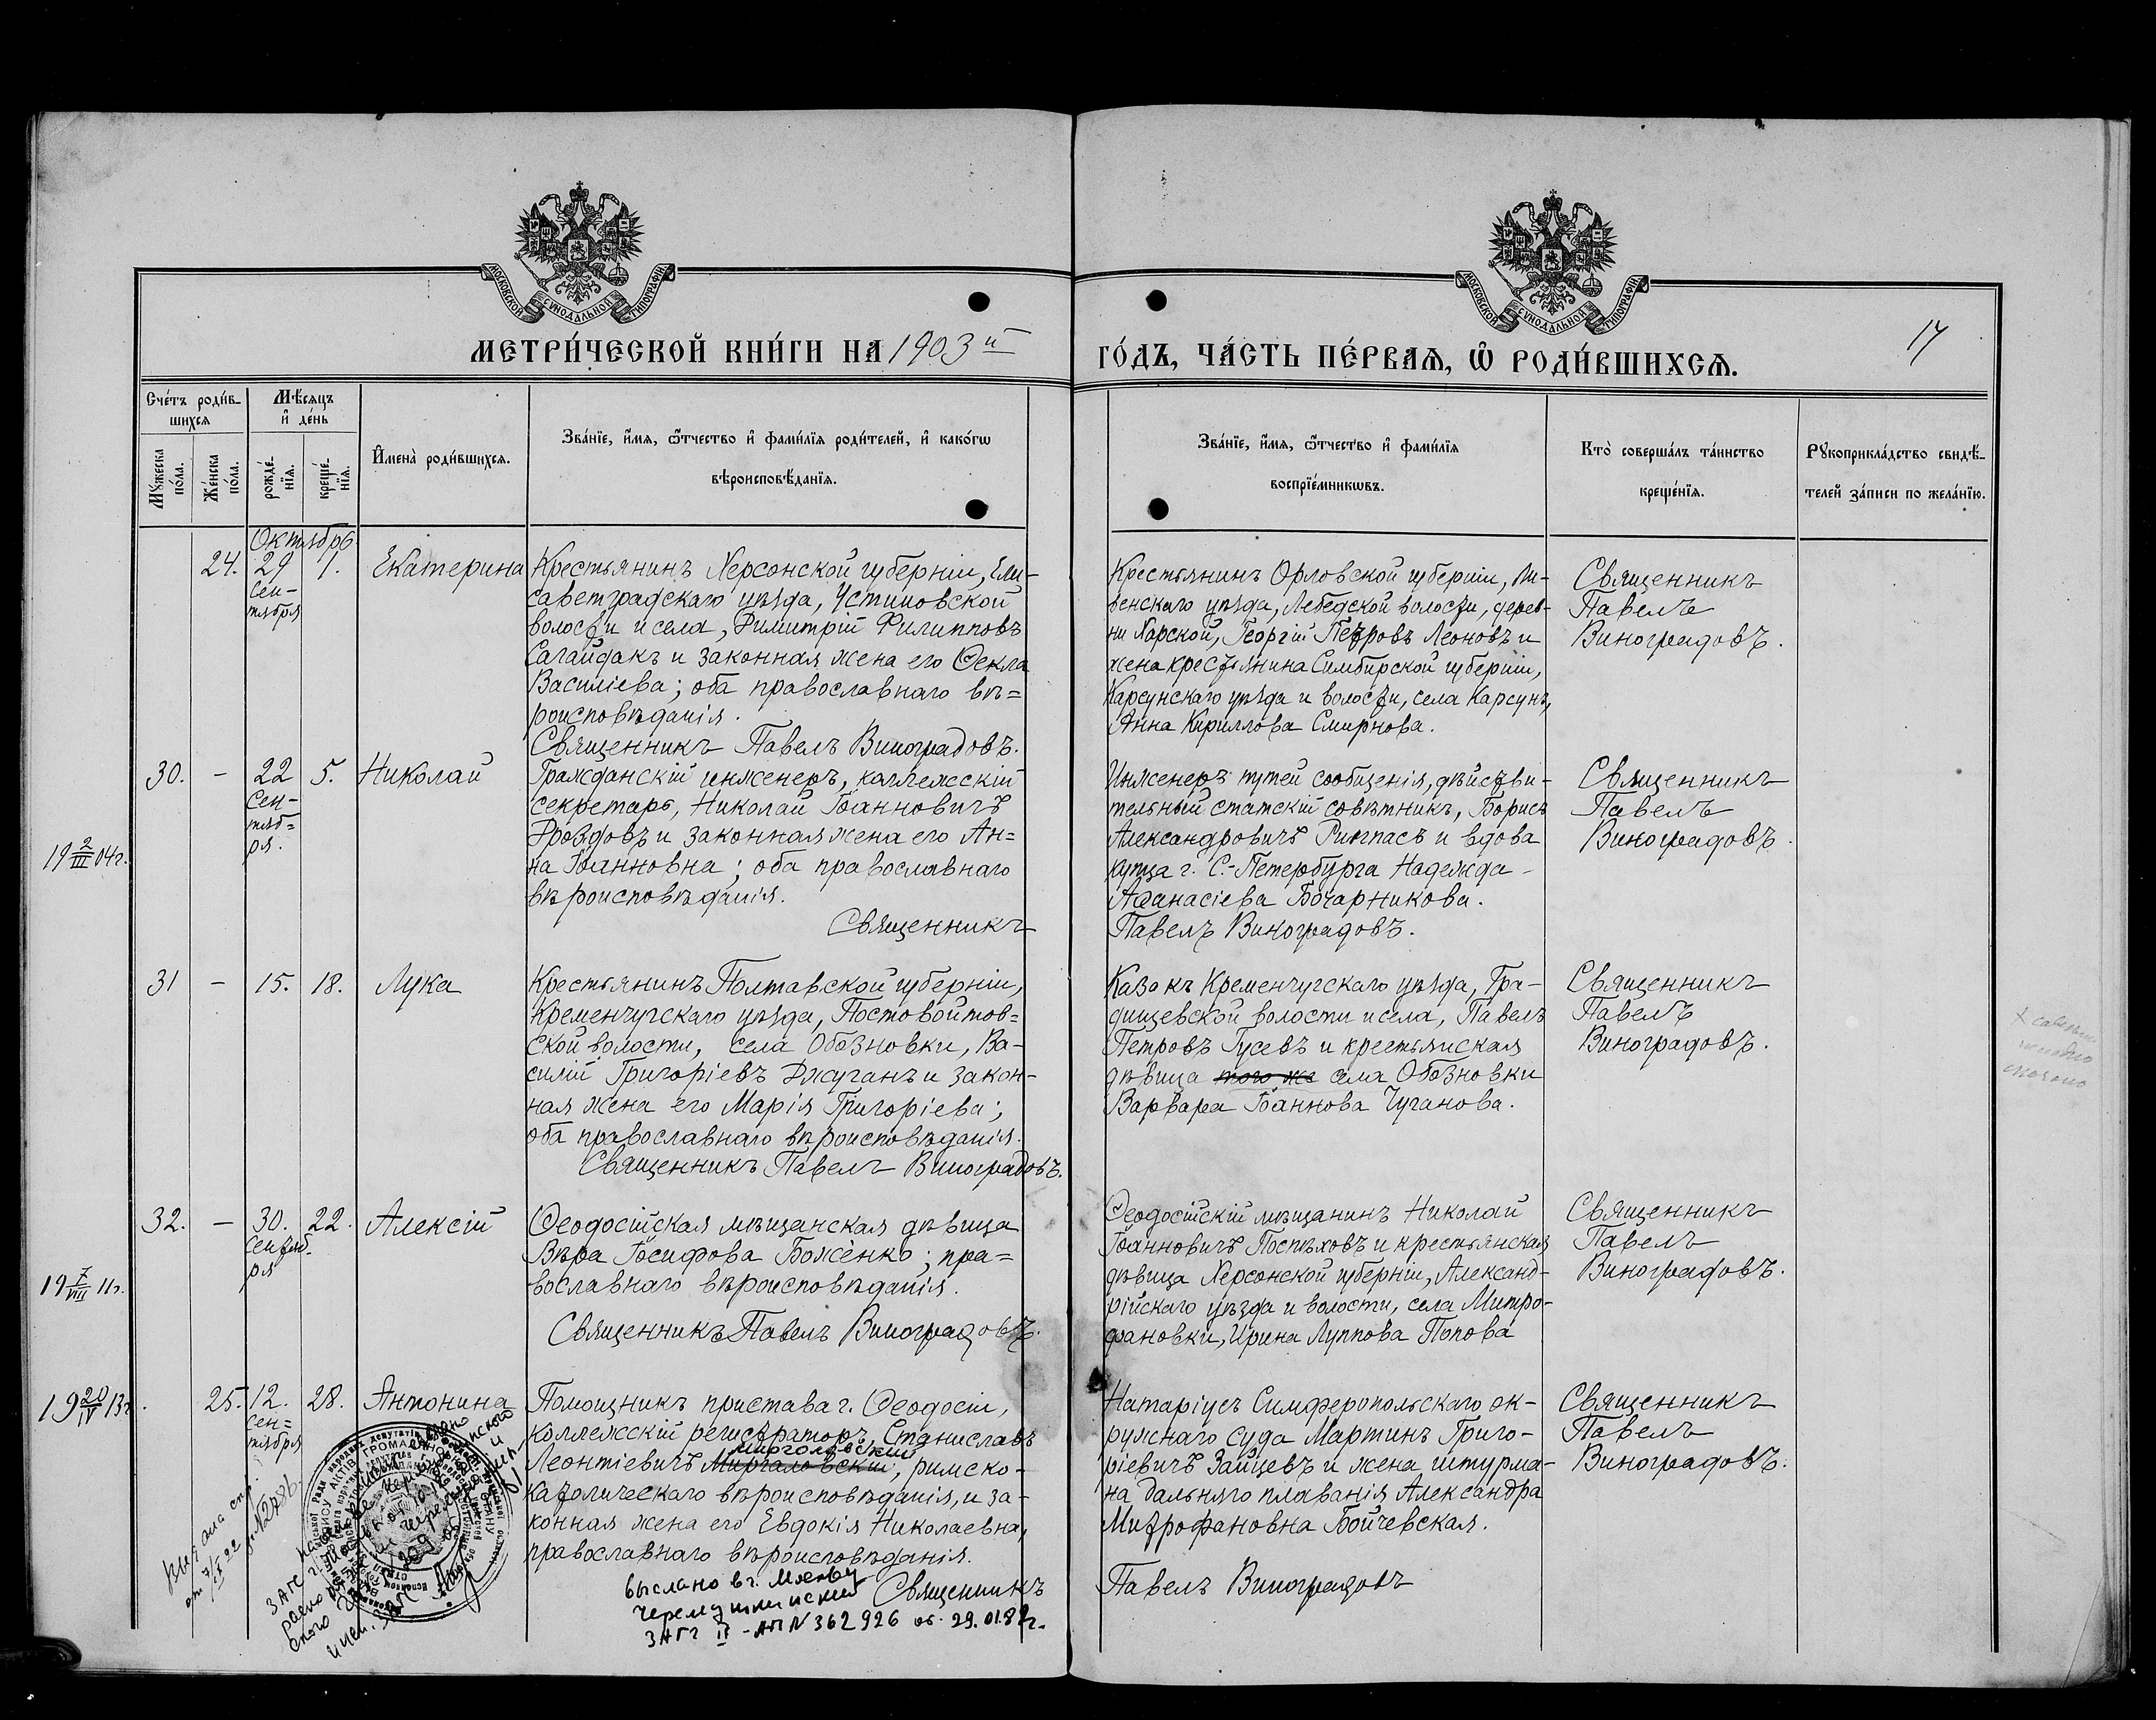 МОСКОВСКОЙ СУНОДАЛЬНОЙ ТИПОГРАФІИ
МОСКОВСКОЙ СУНОДАЛЬНОЙ ТИПОГРАФІИ
МЕТРИ́ЧЕСКОЙ КНИ́ГИ НА 1903й
ГО́ДЪ, ЧА́СТЬ ПЕ́РВАѦ, Ѡ҆ РОДИ́ВШИХСѦ.
17
Сче́тъ роди́в-
шихсѧ
Мѣ́сѧцъ
и҆ де́нь
Мꙋ́жеска по́ла.
Же́нска по́ла.
рожде́-нїѧ.
креще́-нїѧ.
И҆мена̀ роди́вшихсѧ.
Зва́нїе, и҆́мѧ, ѻ҆́тчество и҆ фами́лїѧ роди́телей, и҆ како́гѡ
вѣроисповѣ́данїѧ.
Зва́нїе, и҆́мѧ, ѻ҆́тчество и҆ фами́лїѧ
воспрїе́мникѡвъ.
Кто̀ соверша́лъ та́инство
креще́нїѧ.
Рꙋкоприкла́дство свидѣ́-
телей за́писи по жела́нїю.
Октябрь
24. 29 1. Екатерина
Сен-
тября
Крестьянинъ Херсонской губерніи, Ели-
саветградскаго уѣзда, Устиновской
волости и села, Димитрій Филипповъ
Сагайдакъ и законная жена его Ѳекла
Василіева; оба православнаго вѣ=
роисповѣданія.
Священникъ Павелъ Виноградовъ.
Крестьянинъ Орловской губерніи, Ли-
венскаго уѣзда, Лебедской волости, дерев-
ни Харской, Георгій Петровъ Леоновъ и
жена крестьянина Симбирской губерніи,
Карсунскаго уѣзда и волости, села Карсунъ,
Анна Кириллова Смирнова.
Священникъ
Павелъ
Виноградовъ.
30. - 22 5. Николай
Сен-
тяб=
ря.
19 2/III 04г.
Гражданскій инженеръ, коллежскій
секретарь, Николай Іоанновичъ
Дроздовъ и законная жена его Ан=
на Іоанновна; оба православнаго
вѣроисповѣданія.
Священникъ
Инженеръ путей сообщенія, дѣйстви-
тельный статскій совѣтникъ, Борисъ
Александровичъ Риппасъ и вдова
купца г. С.-Петербурга Надежда
Аѳанасіева Бочарникова.
Павелъ Виноградовъ.
Священникъ
Павелъ
Виноградовъ.
31 - 15. 18. Лука
Крестьянинъ Полтавской губерніи,
Кременчугскаго уѣзда, Постовойтов=
ской волости, села Обозновки, Ва-
силій Григоріевъ Джуганъ и закон-
ная жена его Марія Григоріева;
оба православнаго вѣроисповѣданія.
Священникъ Павелъ Виноградовъ.
Казакъ Кременчугскаго уѣзда, Гра-
дищевской волости и села, Павелъ
Петровъ Гусевъ и крестьянская
дѣвица того же села Обозновки
Варвара Іоаннова Чуганова.
Священникъ
Павелъ
Виноградовъ.
32. - 30. 22. Алексій
Сентяб-
ря
19 7/VIII 11г.
Ѳеодосійская мѣщанская дѣвица
Вѣра Іосифова Боженко; пра=
вославнаго вѣроисповѣданія.
Священникъ Павелъ Виноградовъ.
Ѳеодосійскій мѣщанинъ Николай
Іоанновичъ Поспѣховъ и крестьянская
дѣвица Херсонской губерніи, Александ-
рійскаго уѣзда и волости, села Митро-
фановки, Ирина Луппова Попова
Священникъ
Павелъ
Виноградовъ.
19 20/IV 13г.
25. 12. 28. Антонина
Сен=
тября
Помощникъ пристава г. Ѳеодосіи,
коллежскій регистраторъ, Станиславъ
Мирголовскій
Леонтіевичъ Миргаловскій, римско-
католическаго вѣроисповѣданія, и за-
конная жена его Евдокія Николаевна,
православнаго вѣроисповѣданія.
Священникъ
выслано в г. Москву
Черемушкинский
ЗАГС
29.01.82г.
Натаріусъ Симферопольскаго ок-
ружнаго суда Мартинъ Григо-
ріевичъ Зайцевъ и жена штурма-
на дальняго плаванія Александра
Митрофановна Бойчевская.
Павелъ Виноградовъ
Священникъ
Павелъ
Виноградовъ.